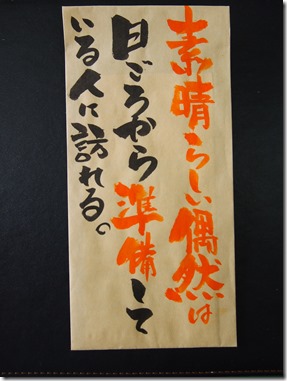 素晴らしい偶然は
日ごろから準備して
いる人に訪れる。